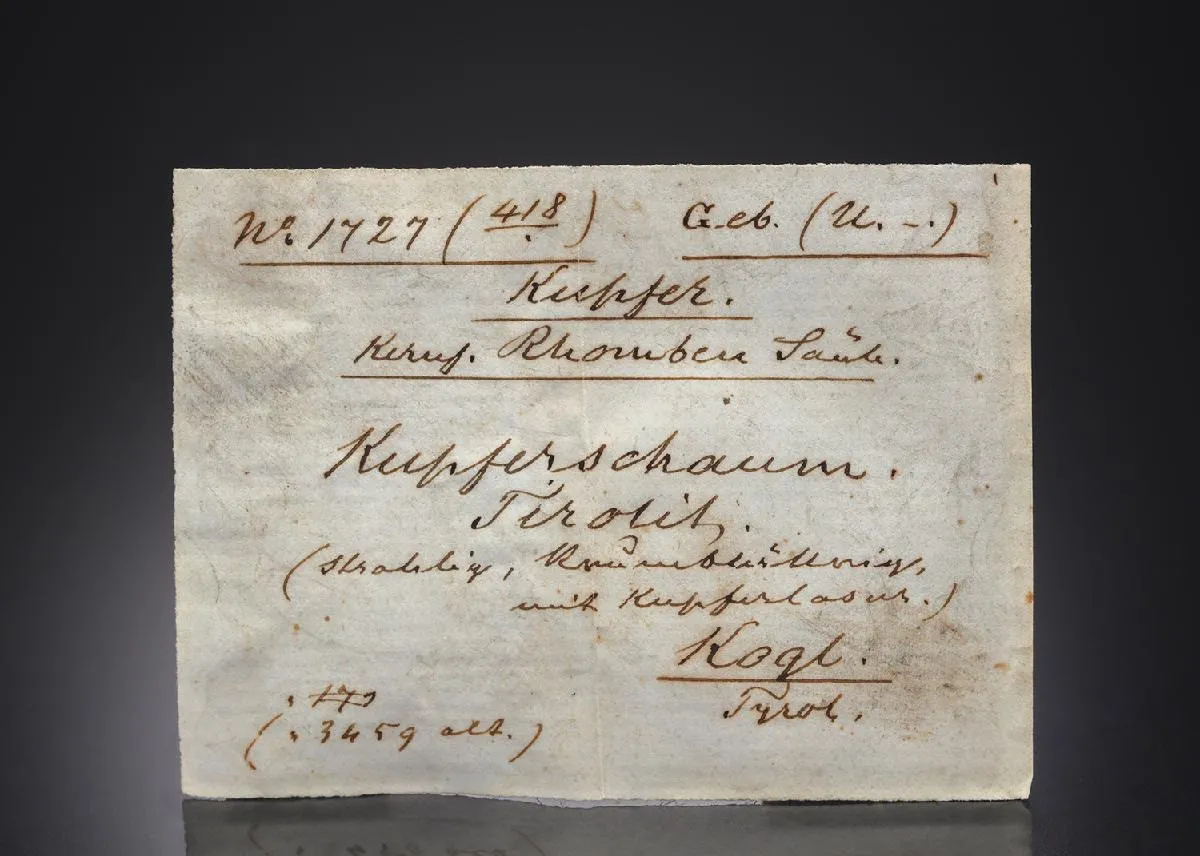 No. 1727 (418) Geb. (U. -.)
Kupfer.
Kernf. Rhomben Säule.
Kupferschaum.
Tirolit.
(strahlig, krummblättrig,
mit Kupferlasur.)
Kogl.
Tyrol.
173
(3459 alt.)